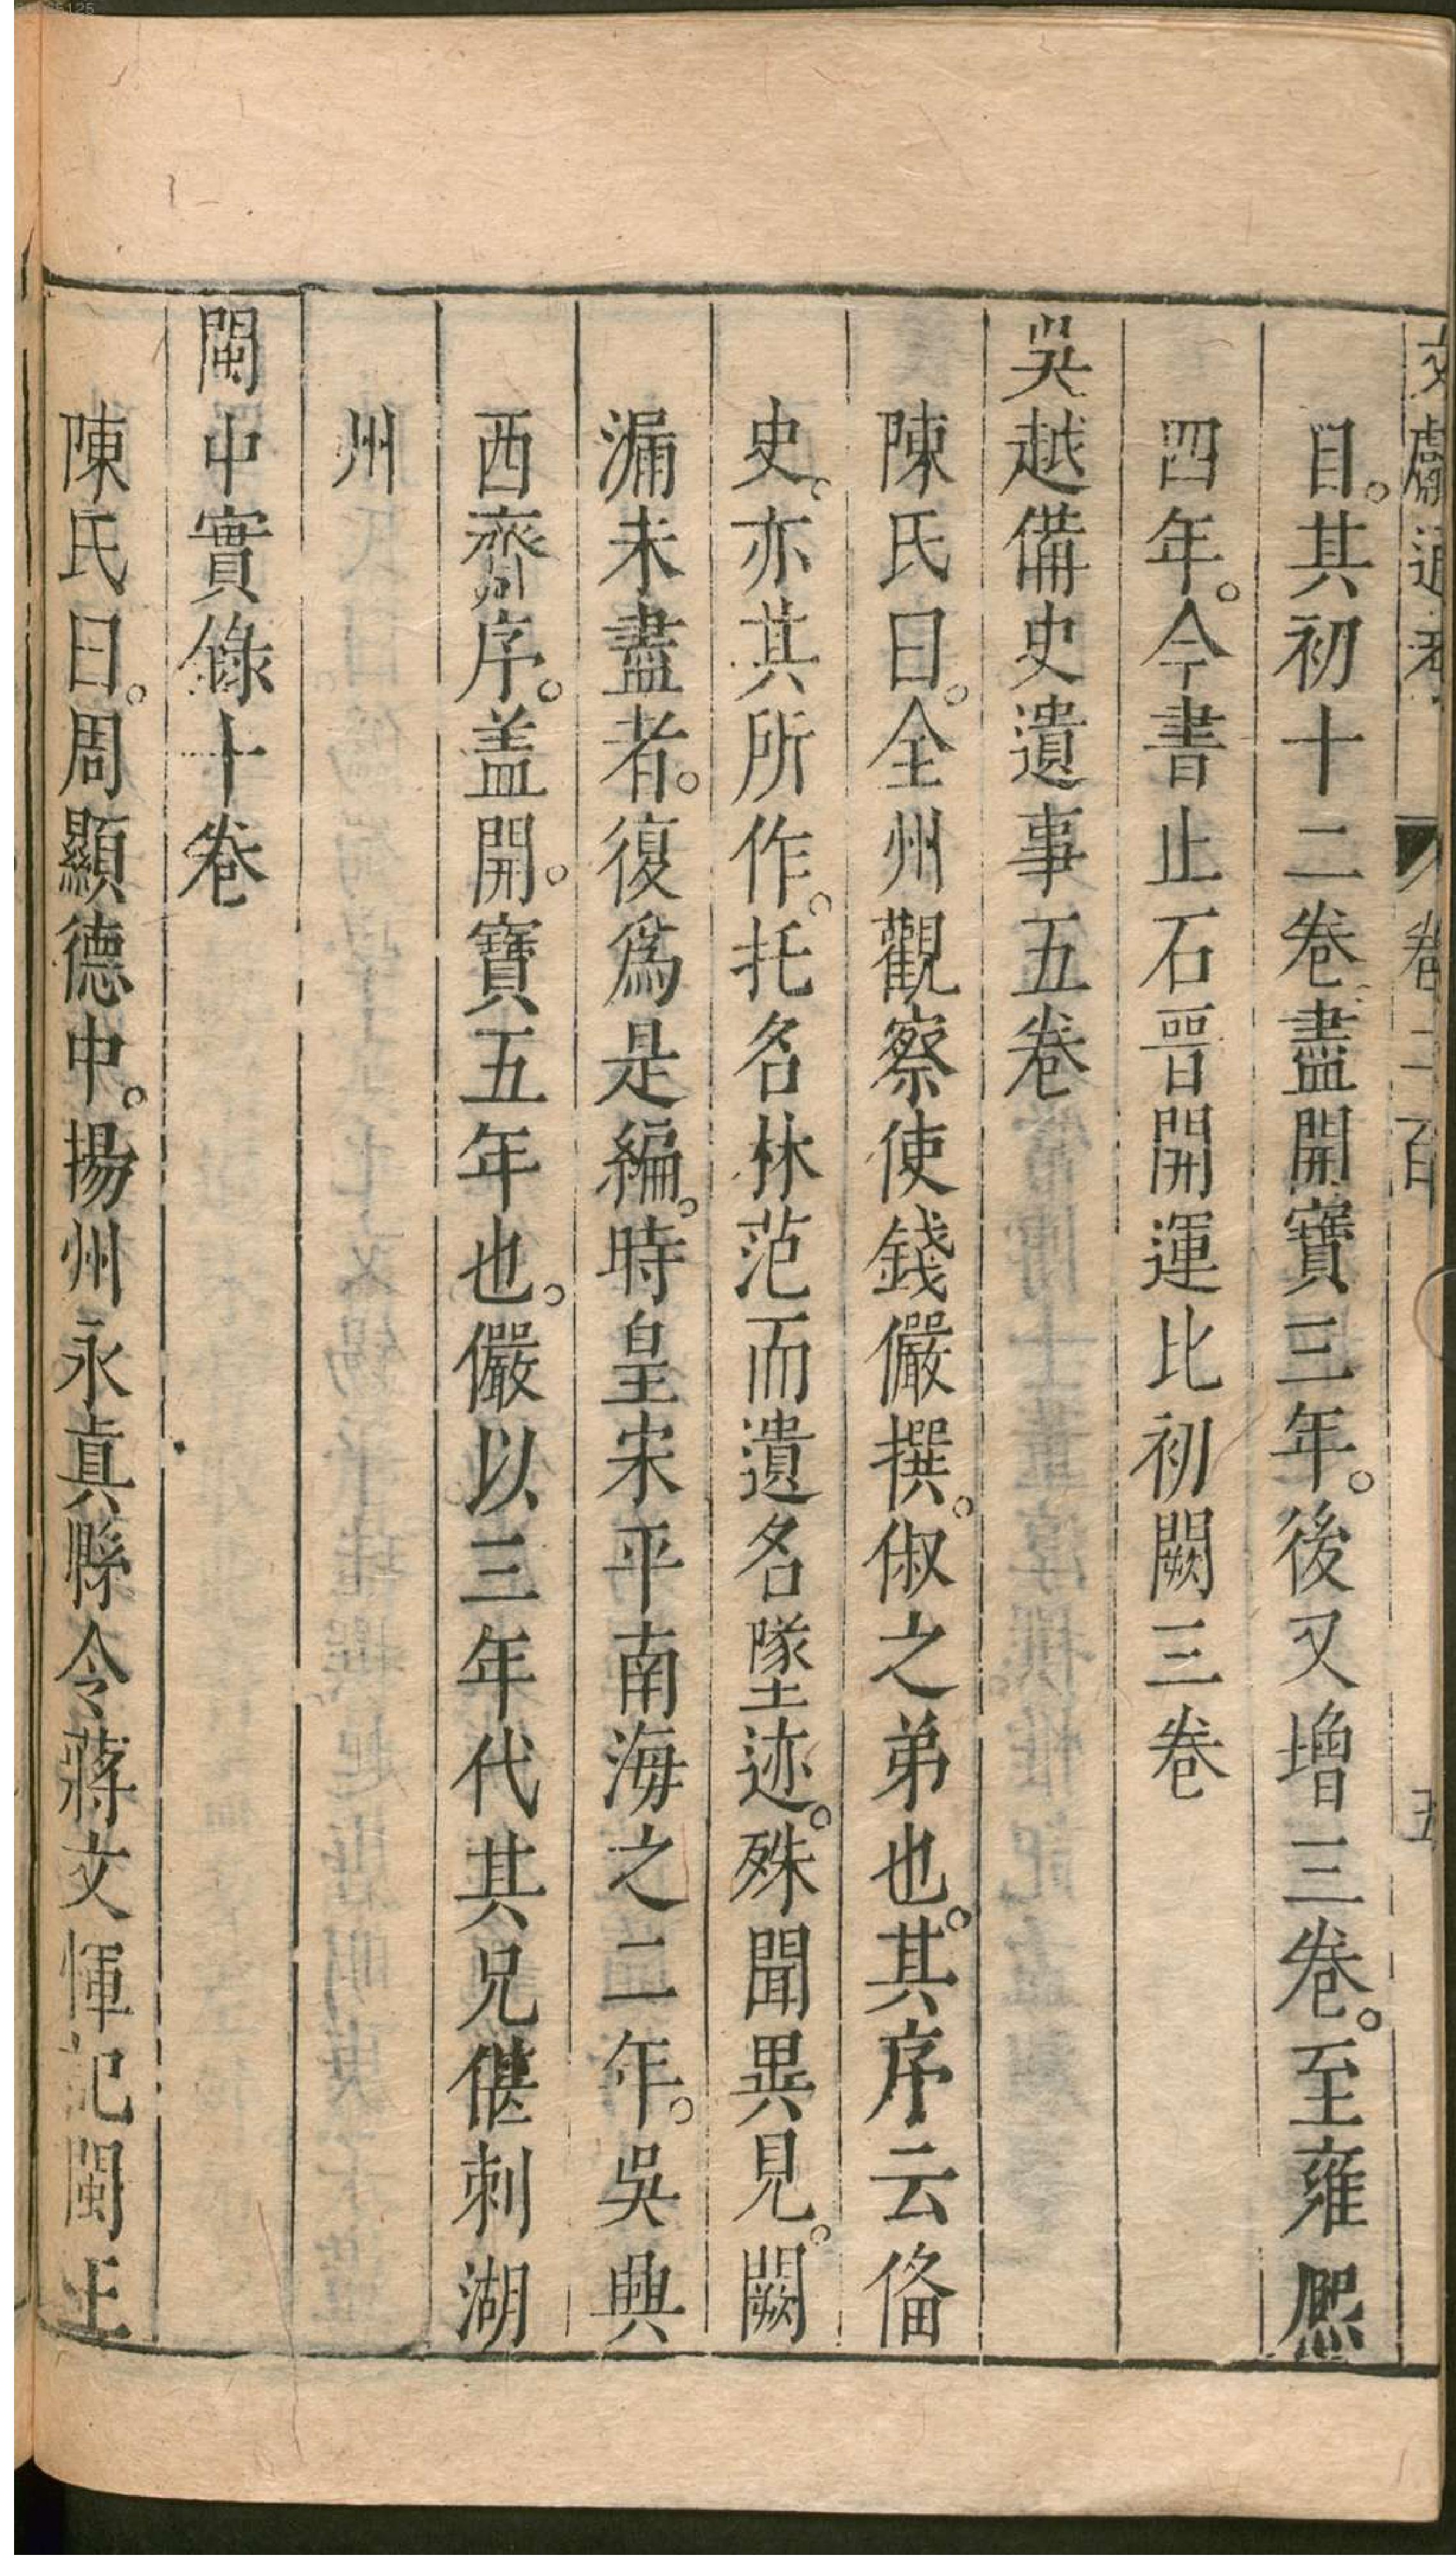 文獻通考 卷二百 五
目。其初十二卷盡開寶三年。後又增三卷。至雍熈
四年。今書止石晉開運比初闕三卷
吳越備史遺事五卷
陳氏曰。全州觀察使錢儼撰。俶之弟也。其序云俻
史。亦其所作。托名林范而遺名墜迹。殊聞異見。闕
漏未盡者。復爲是編。時皇宋平南海之二年。吳興
西齋序。盖開。寶五年也。儼以三年代其兄偡刺湖
州
閩中實錄十卷
陳氏曰。周顯德中。揚州永眞縣令蔣文惲記閩王